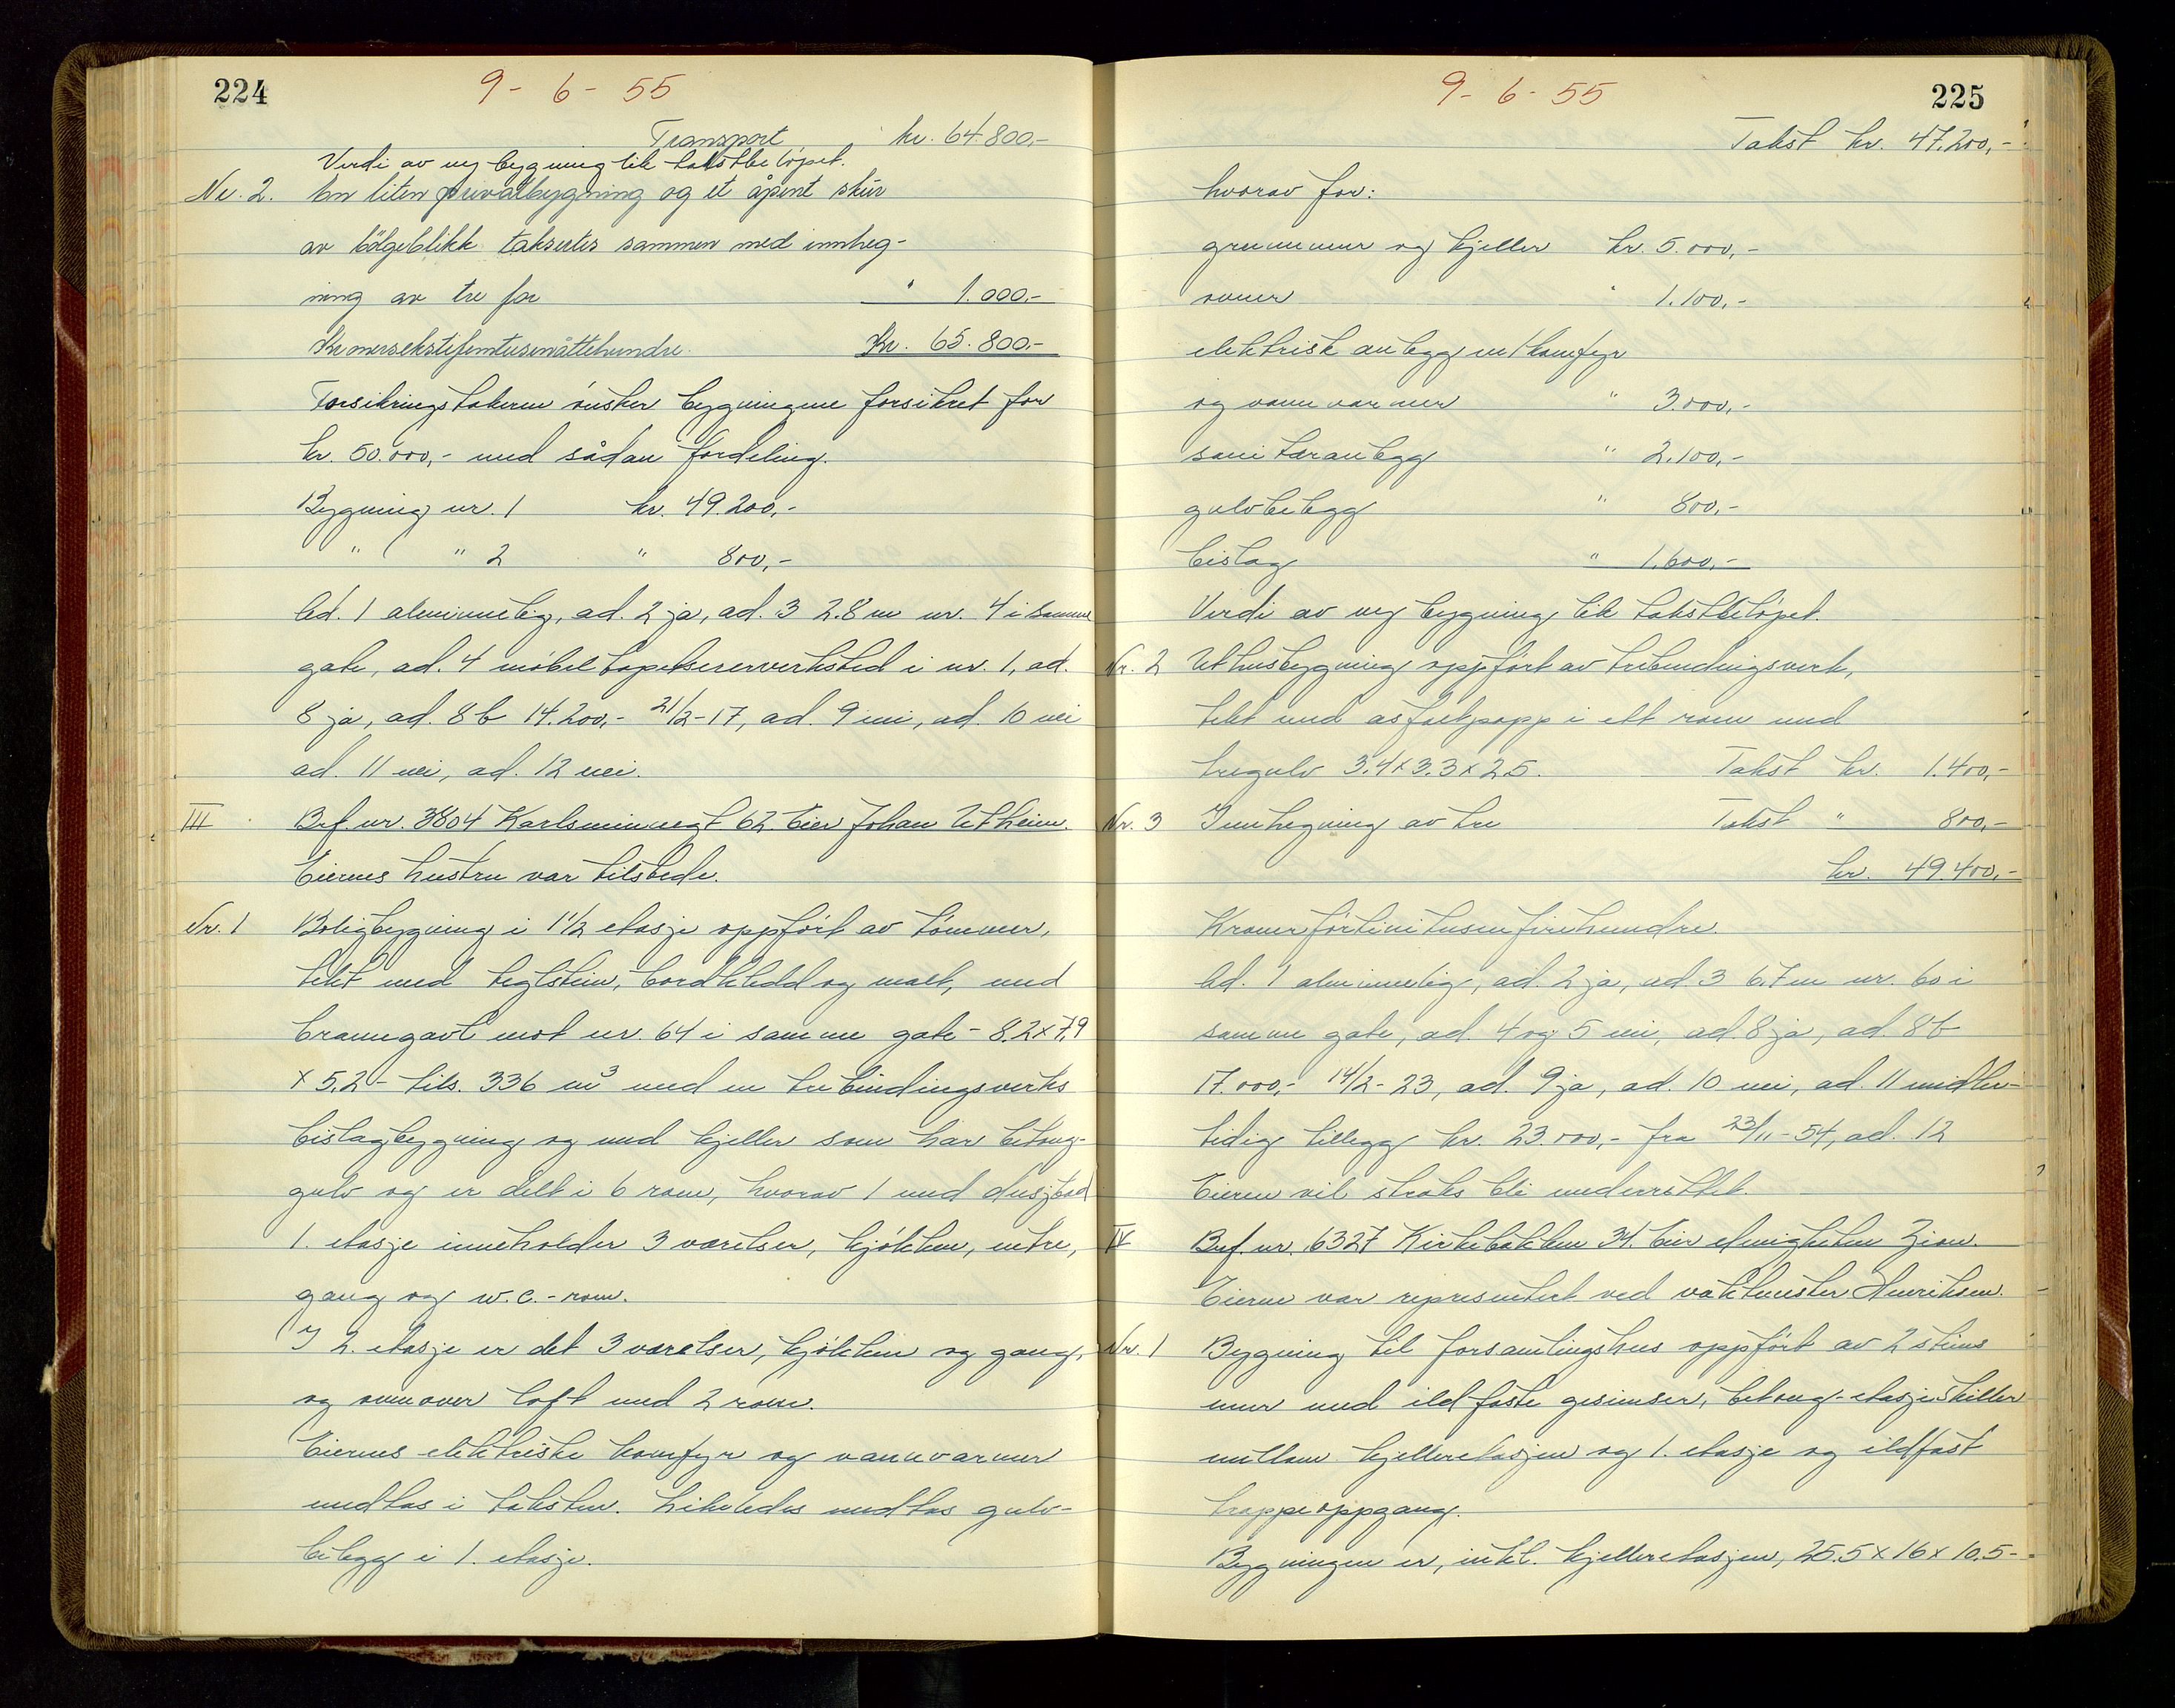 224
9-6-55
Transport kr. 64.800,-
Verdi av ny bygning lik takstbeløpet.
Nr. 2. En liten privatbygning og et åpent skur
av bølgeblikk takseres sammen med innheg-
ning av tre for " 1.000,-
Kronersekstifemtusenåttehundre. Kr. 65.800,-
Forsikringstakeren ønsker bygningene forsikret for
kr. 50.000,- med sådan fordeling.
Bygning nr. 1 kr. 49.200,-
" " 2 " 800,-
Ad. 1 alminnelig, ad. 2 ja, ad. 3 2.8 m nr. 4 i samme
gate, ad. 4 møbeltapetsererverksted i nr. 1, ad.
8 ja, ad. 8b 14.200,- 21/2-17, ad. 9 nei, ad. 10 nei
ad. 11 nei, ad. 12 nei.
III Brf. nr. 3804 Karlsminnegt 62. Eier Johan Utheim.
Eierens hustru var tilstede.
Nr. 1 Boligbygning i 1 1/2 etasje oppført av tømmer,
tekt med teglstein, bordkledd og malt, med
branngavl mot nr. 64 i samme gate - 8.2 x 7.9
x 5.2 - tils. 336 m³ med en trebindingsverks
bislagbygning og med kjeller som har betong-
gulv og er delt i 6 rom, hvorav 1 med dusjbad
1. etasje inneholder 3 værelser, kjøkken, entre,
gang og w.c.-rom.
I 2. etasje er det 3 værelser, kjøkken og gang,
og ovenover loft med 2 rom.
Eierens elektriske komfyr og vannvarmer
medtas i taksten. Likeledes medtas gulv-
belegg i 1. etasje.
225
9-6-55
Takst kr. 47.200,-
hvorav for:
grunnmur og kjeller kr. 5.000,-
ovner " 1.100,-
elektrisk anlegg m/komfyr
og vannvarmer " 3.000,-
sanitæranlegg " 2.100,-
gulvbelegg " 800,-
bislag " 1.600,-
Verdi av ny bygning lik takstbeløpet.
Nr. 2 Uthusbygning oppført av trebindingsverk,
tekt med asfaltpapp i ett rom med
tregulv 3.4 x 3.3 x 2.5. Takst kr. 1.400,-
Nr. 3 Innhegning av tre Takst " 800,-
kr. 49.400,-
Kronerførtinitusenfirehundre.
Ad. 1 alminnelig, ad. 2 ja, ad. 3 6.7 m nr. 60 i
samme gate, ad. 4 og 5 nei, ad. 8 ja, ad. 8b
17.000,- 14/2-23, ad. 9 ja, ad. 10 nei, ad. 11 midler-
tidig tillegg kr. 23.000,- fra 23/11-54, ad. 12
Eieren vil straks bli underrettet.
IV Brf. nr. 6327 Kirkebakken 34. Eier Menigheten Zion.
Eieren var representert ved vaktmester Henriksen.
Nr. 1 Bygning til forsamlingshus oppført av 2 steins
mur med ildfaste gesimser, betong-etasjeskiller
mellom kjelleretasjen og 1. etasje og ildfast
trappeoppgang.
Bygningen er, inkl. kjelleretasjen, 25.5 x 16 x 10.5-